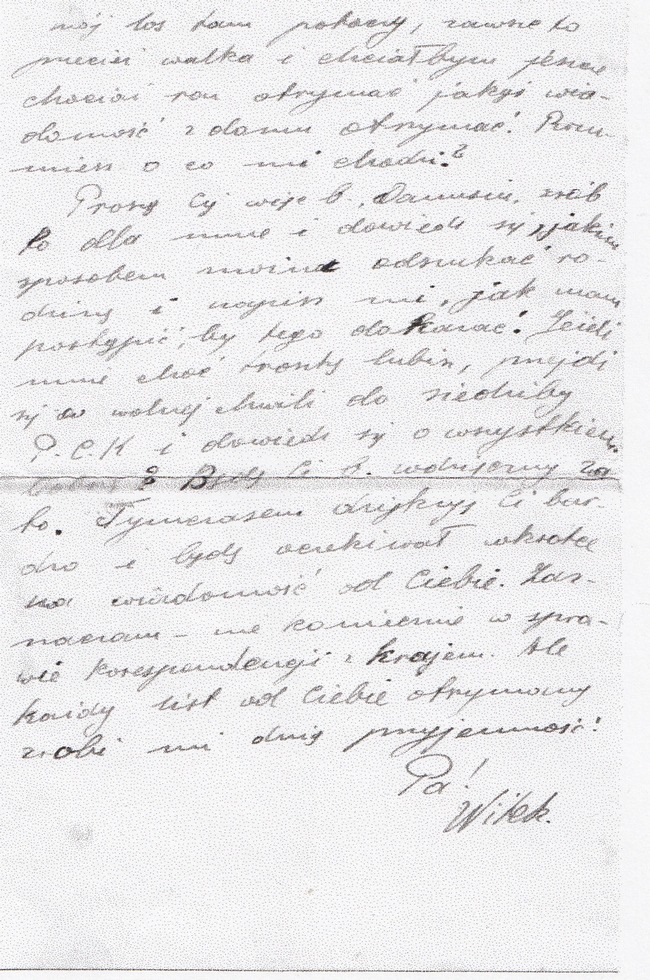 mój los tam potoczy, zawsze to
przecież walka i chciałbym jeszcze
chociaż raz otrzymać jakąś wia-
domość z domu otrzymać! Rozu-
miesz o co mi chodzi?
Proszę Cię więc b. Danusiu, zrób
to dla mnie i dowiedz się, jakim
sposobem można odszukać ro-
dzinę i napisz mi, jak mam
postąpić, by tego dokazać! Jeżeli
mnie choć troszkę lubisz, przejdź
się w wolnej chwili do siedziby
P.C.K i dowiedz się o wszystkiem,
? Będę Ci b. wdzięczny za
to. Tymczasem dziękuję Ci bar-
dzo i będę oczekiwał wkrótce
na wiadomość od Ciebie. Zaz-
naczam - nie koniecznie w spra-
wie korespondencji z krajem. Ale
każdy list od Ciebie otrzymany
zrobi mi dużą przyjemność!
Pa!
Witek.